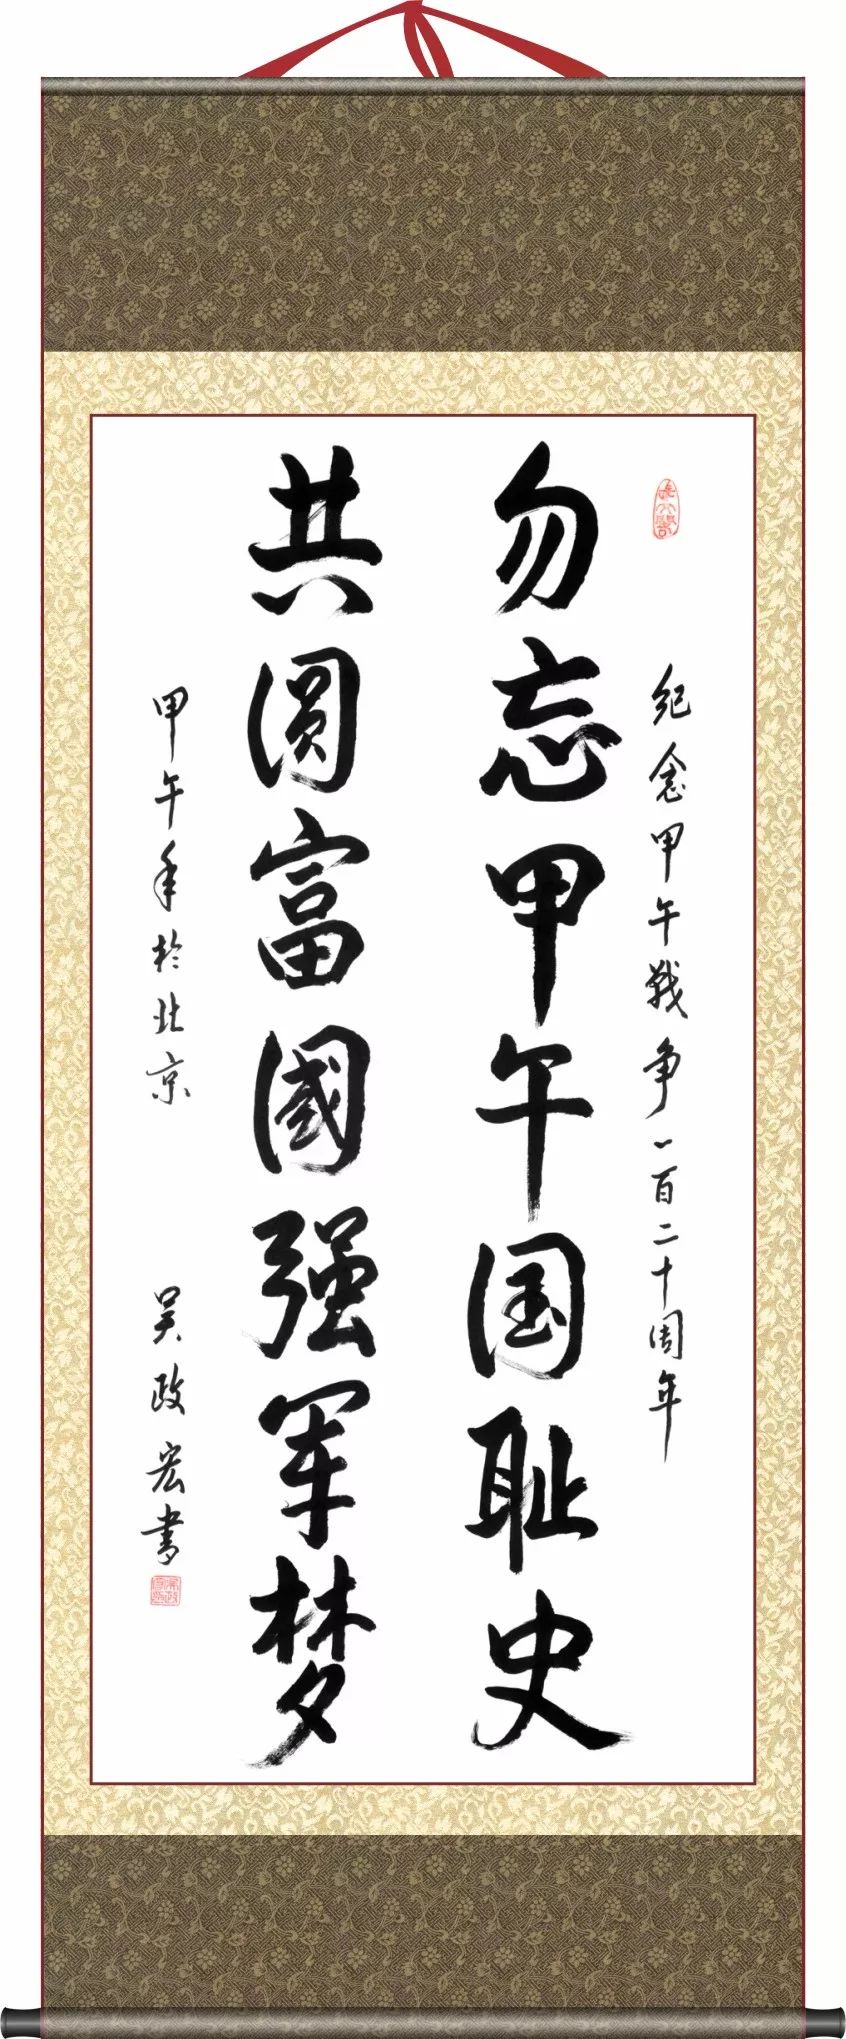 纪念甲午战争一百二十周年
勿忘甲午国耻史
共圆富國强军梦
甲午年於北京
吴政宏書